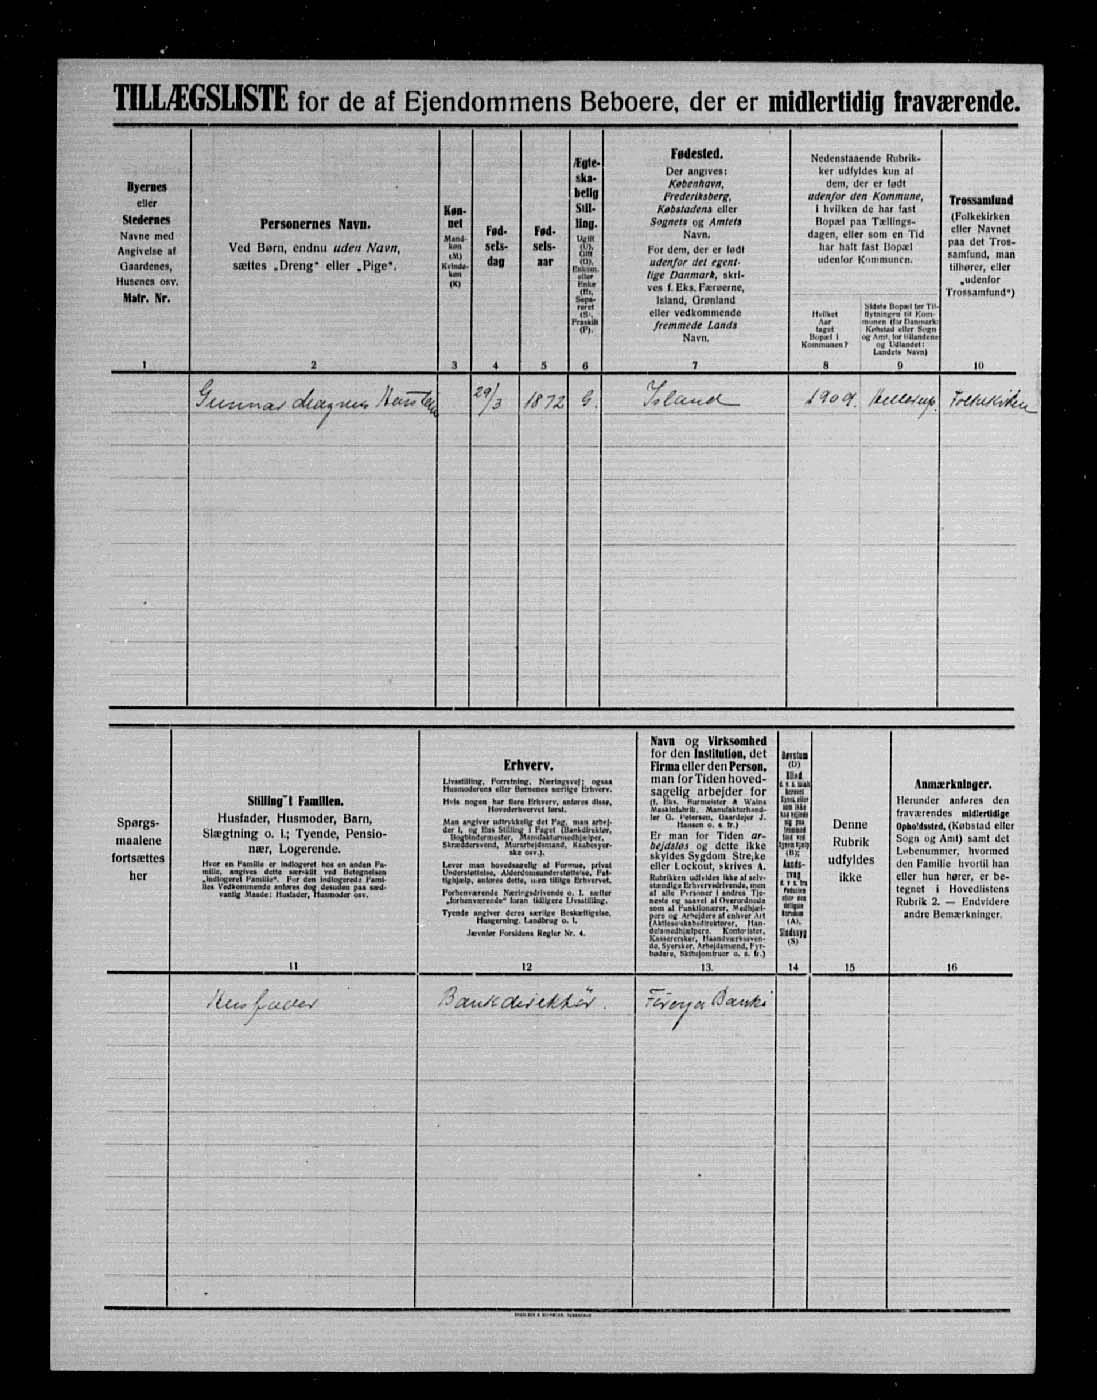 TILLÆGSLISTE for de af Ejendommens Beboere, der er midlertidig fraværende.
Byernes
eller
Stedernes
Navne med
Angivelse af
Gaardenes,
Husenes osv.
Matr. Nr.
1
Personernes Navn.
Ved Børn, endnu uden Navn,
sættes „Dreng“ eller „Pige“.
2
Køn-
net
Mand-
køn
(M)
Kvinde-
køn
(K)
3
Fød-
sels-
dag
4
Fød-
sels-
aar
5
Ægte-
ska-
belig
Stil-
ling.
Ugift
(U),
Gift
(G),
Enkem.
eller
Enke
(E),
Sepa-
reret
(S),
Fraskilt
(F).
6
Fødested.
Der angives:
København,
Frederiksberg,
Købstadens eller
Sognets og Amtets
Navn.
For dem, der er født
udenfor det egent-
lige Danmark, skri-
ves f. Eks. Færøerne,
Island, Grønland
eller vedkommende
fremmede Lands
Navn.
7
Nedenstaaende Rubrik-
ker udfyldes kun af
dem, der er født
udenfor den Kommune,
i hvilken de har fast
Bopæl paa Tællings-
dagen, eller som en Tid
har haft fast Bopæl
udenfor Kommunen.
Hvilket
Aar
taget
Bopæl i
Kommunen?
8
Sidste Bopæl før Til-
flytningen til Kom-
munen (for Danmark:
Købstad eller Sogn
og Amt, for Bilandene
og Udlandet:
Landets Navn)
9
Trossamfund
(Folkekirken
eller Navnet
paa det Tros-
samfund, man
tilhører, eller
„udenfor
Trossamfund“)
10
Gunnar Magnus 29/3 1872 G. Island 1909. Hellerup. Folkekirken
Spørgs-
maalene
fortsættes
her
Stilling i Familien.
Husfader, Husmoder, Barn,
Slægtning o. l.; Tyende, Pensio-
nær, Logerende.
Hvor en Familie er indlogeret hos en anden Fa-
milie, angives dette særskilt ved Betegnelsen
„indlogeret Familie“. For den indlogerede Fami-
lies Vedkommende anføres dog desuden paa sæd-
vanlig Maade: Husfader, Husmoder osv.
11
Erhverv.
Livsstilling, Forretning, Næringsvej; ogsaa
Husmoderens eller Børnenes særlige Erhverv.
Hvis nogen har flere Erhverv, anføres disse,
Hovederhvervet først.
Man angiver udtrykkelig det Fag, man arbej-
der i, og Ens Stilling i Faget (Bankdirektør,
Bogbindermester, Manufakturmedhjælper,
Skræddersvend, Murarbejdsmand, Kaabesyer-
ske osv.).
Lever man hovedsagelig af Formue, privat
Understøttelse, Alderdomsunderstøttelse, Fat-
tighjælp, anføres dette, men tillige Erhvervet.
Forhenværende Næringsdrivende o. l. sætter
„forhenværende“ foran tidligere Livsstilling.
Tyende angiver deres særlige Beskæftigelse,
Husgerning, Landbrug o. l.
Jævnfør Forsidens Regler Nr. 4.
12
Navn og Virksomhed
for den Institution, det
Firma eller den Person,
man for Tiden hoved-
sagelig arbejder for
(f. Eks. Burmeister & Wains
Maskinfabrik, Manufakturhand-
ler G. Petersen, Gaardejer J.
Hansen o. s. fr.)
Er man for Tiden ar-
bejdsløs og dette ikke
skyldes Sygdom Strejke
eller Lockout, skrives A.
Rubrikken udfyldes ikke af selv-
stændige Erhvervsdrivende, men
af alle Personer i andres Tje-
neste og saavel af Overordnede
som af Funktionærer, Medhjæl-
pere og Arbejdere af enhver Art
(Aktieselskabsdirektører, Han-
delsmedhjælpere, Kontorister,
Kassererker, Haandværkssven-
de, Syersker, Arbejdsmænd, Fyr-
bødere, Skibsjomfruer o. s. fr.)
13.
Døvstum
(D)
Blind
(B);
Aands-
svag
(A),
Sindssyg
(S)
14
Denne
Rubrik
udfyldes
ikke
15
Anmærkninger.
Herunder anføres den
fraværendes midlertidige
Opholdssted, (Købstad eller
Sogn og Amt) samt det
Løbenummer, hvormed
den Familie hvortil han
eller hun hører, er be-
tegnet i Hovedlistens
Rubrik 2. — Endvidere
andre Bemærkninger.
16
Husfader Bankdirektør. Føroya Banki